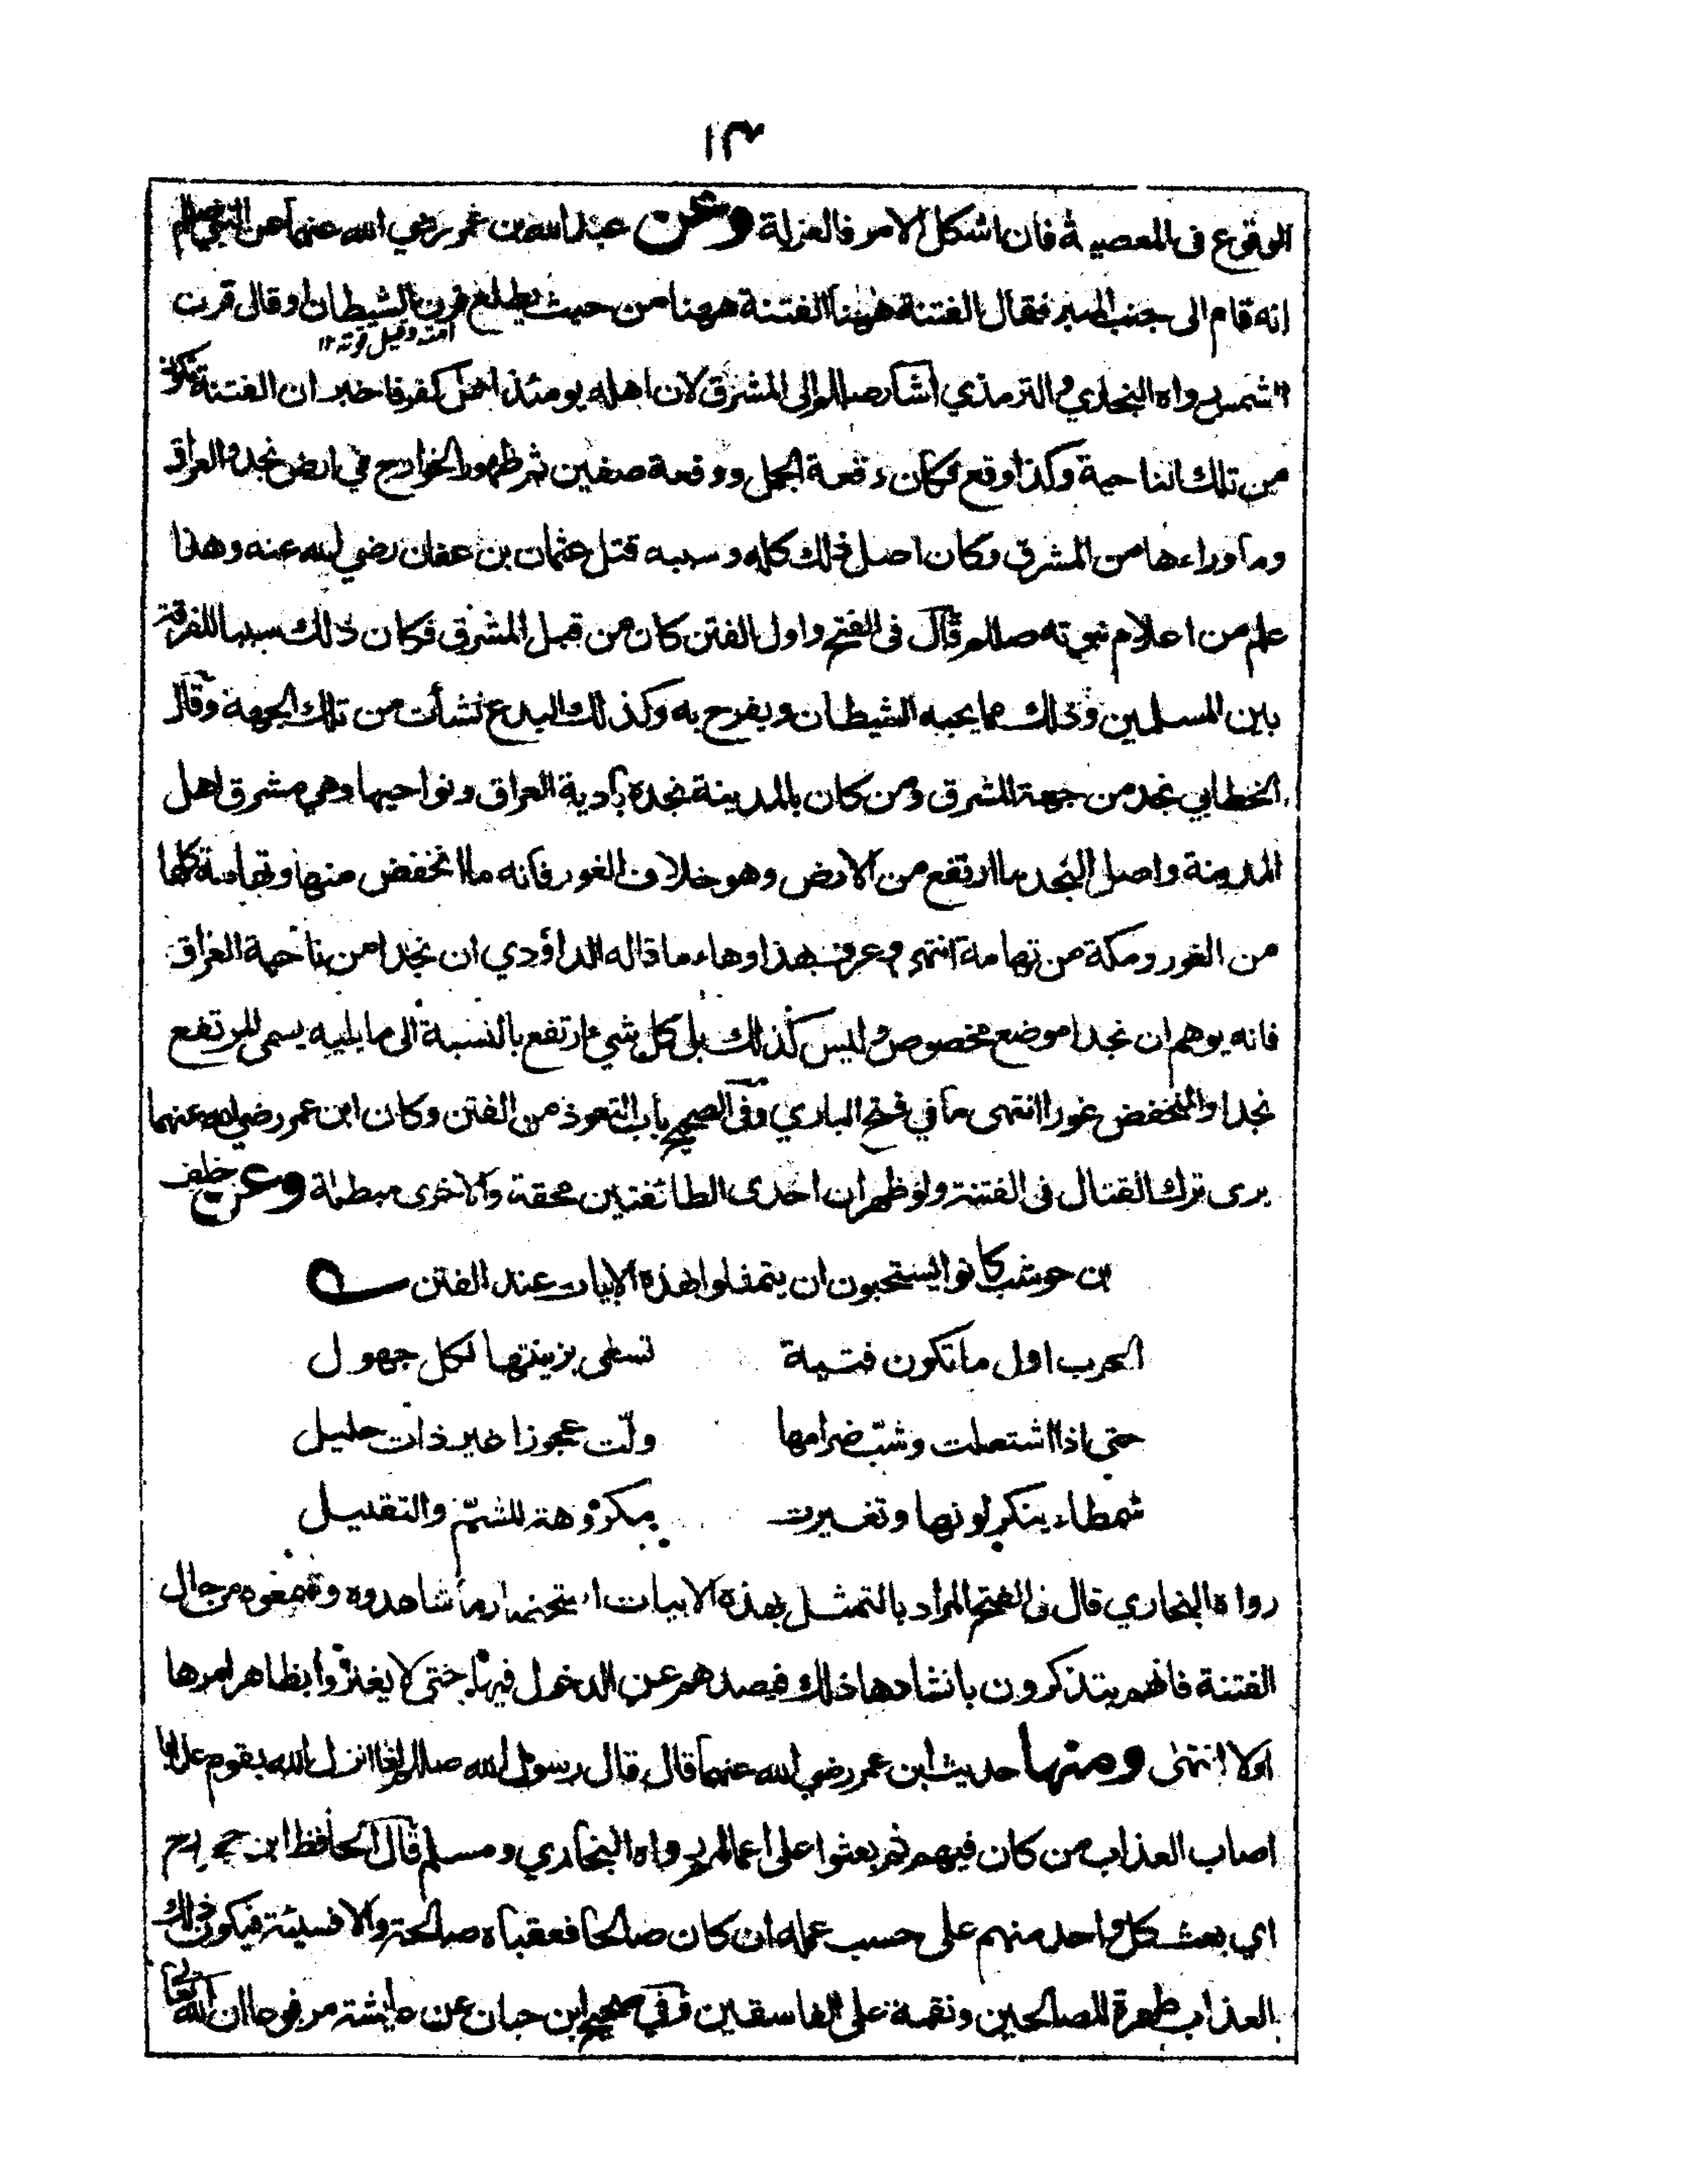 ١٣
الوقوع فى المعصية فان اشكل الامر فالعزلة وعن عبد الله بن عمر رضي الله عنهما عن النبي صللم
انه قام الى جنب المنبر فقال الفتنة ههنا الفتنة ههنا من حيث يطلع قرن الشيطان او قال قرن
امته وقيل قوته ١٢
الشمس رواه البخاري والترمذي اشار صللم الى المشرق لان اهله يومئذ اهل كفر فاخبر ان الفتنة تكون
من تلك الناحية وكذا وقع فكان وقعة الجمل ووقعة صفين ثم ظهور الخوارج في ارض نجد والعراق
وما وراءها من المشرق وكان اصل ذلك كله وسببه قتل عثمان بن عفان رضي الله عنه وهذا
علم من اعلام نبوته صللم قال فى الفتح واول الفتن كان من قبل المشرق فكان ذلك سببا للفرقة
بين المسلمين وذلك مما يحبه الشيطان ويفرح به وكذلك البدع نشأت من تلك الجهة وقال
الخطابي نجد من جهة المشرق ومن كان بالمدينة نجده بادية العراق ونواحيها وهي مشرق اهل
المدينة واصل النجد ما ارتفع من الارض وهو خلاف الغور فانه ما انخفض منها وتهامة كلها
من الغور ومكة من تهامة انتهى وعرف بهذا وهاء ما قاله الداؤدي ان نجدا من ناحية العراق
فانه يوهم ان نجدا موضع مخصوص وليس كذلك بل كل شيء ارتفع بالنسبة الى ما يليه يسمى المرتفع
نجدا والمنخفض غورا انتهى ما في فتح الباري وفى الصحيح باب التعوذ من الفتن وكان ابن عمر رضي الله عنهما
يرى ترك القتال فى الفتنة ولو ظهر ان احدى الطائفتين محقة والاخرى مبطلة وعن خلف
بن حوشب كانوا يستحبون ان يتمثلوا بهذه الابيات عند الفتن
الحرب اول ما تكون فتية تسعى بزينتها لكل جهول
حتى اذا اشتعلت وشب ضرامها ولّت عجوزا غير ذات حليل
شمطاء ينكر لونها وتغيرت مكروهة للشمّ والتقبيل
رواه البخاري قال فى الفتح المراد بالتمثل بهذه الابيات استحضار ما شاهدوه وسمعوه من حال
الفتنة فانهم يتذكرون بانشادها ذلك فيصدهم عن الدخول فيها حتى لا يغتروا بظاهر امرها
اولا انتهى ومنها حديث ابن عمر رضي الله عنهما قال قال رسول الله صللم اذا انزل الله بقوم عذابا
اصاب العذاب من كان فيهم ثم بعثوا على اعمالهم رواه البخاري ومسلم قال الحافظ ابن حجر رح
اي بعث كل واحد منهم على حسب عمله ان كان صالحا فعقباه صالحة والا فسيئة فيكون ذلك
العذاب طهرة للصالحين ونقمة على الفاسقين وفي صحيح ابن حبان عن عايشة مرفوعا ان الله تعالى